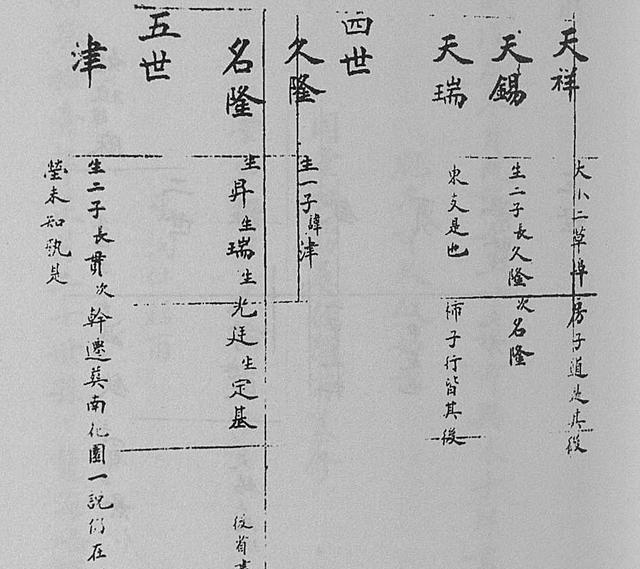 天祥
大小二草埠房子道是其後
天錫
生二子長久隆次名隆
天瑞
東支是也柿子行皆其後
四世
久隆
生一子諱津
名隆
生昇生瑞生光廷生定基
後省
五世
津
生二子長貫次幹遷莫南化園一說仍在
塋未知孰是